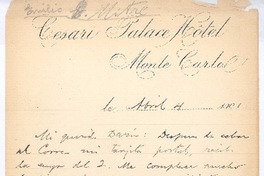 Emilio B. Mitre
Cesari Palace Hôtel
Monte Carlo
le Abril 4 190
Mi querido Darío: Despues de echar
al Correo mi tarjeta postal, recibí
la suya del 2. Me complace mucho